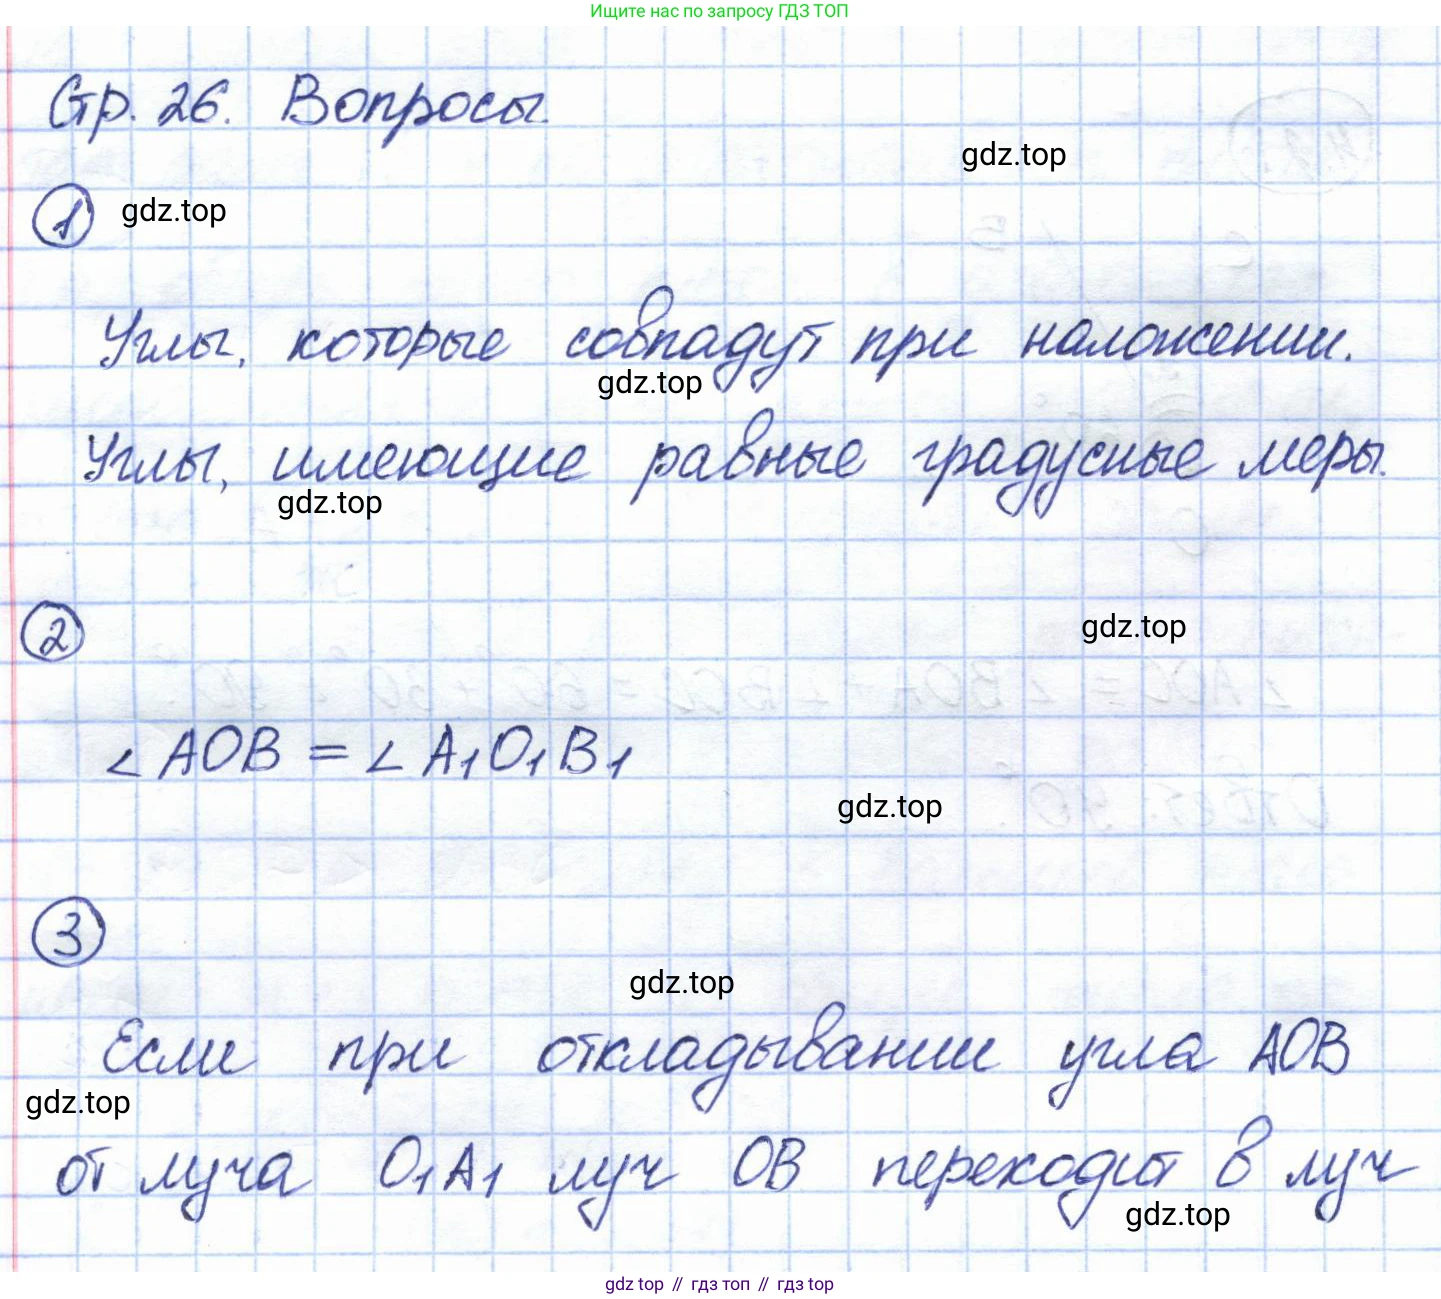 Ищите нас по запросу ГДЗ ТОП
Стр. 26. Вопросы.
gdz.top
1 gdz.top
Углы, которые совпадут при наложении.
gdz.top
Углы, имеющие равные градусные меры.
gdz.top
2
gdz.top
∠ AOB = ∠ A₁O₁B₁
gdz.top
3
gdz.top
Если при откладывании угла AOB
gdz.top
от луча O₁A₁ луч OB переходит в луч
gdz.top
gdz top // гдз топ // гдз top